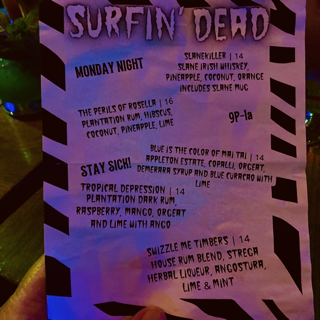 SURFIN' DEAD
MONDAY NIGHT
SLANEKILLER | 14
SLANE IRISH WHISKEY,
PINEAPPLE, COCONUT, ORANGE
INCLUDES SLANE MUG
THE PERILS OF ROSELLA | 16
PLANTATION RUM, HIBISCUS,
COCONUT, PINEAPPLE, LIME
9P-1a
BLUE IS THE COLOR OF MAI TAI | 14
APPLETON ESTATE, COPALLI, ORGEAT,
DEMERARA SYRUP AND BLUE CURACAO WITH
LIME
STAY SICK!
TROPICAL DEPRESSION | 14
PLANTATION DARK RUM,
RASPBERRY, MANGO, ORGEAT
AND LIME WITH ANGO
SWIZZLE ME TIMBERS | 14
HOUSE RUM BLEND, STREGA
HERBAL LIQUEUR, ANGOSTURA,
LIME & MINT